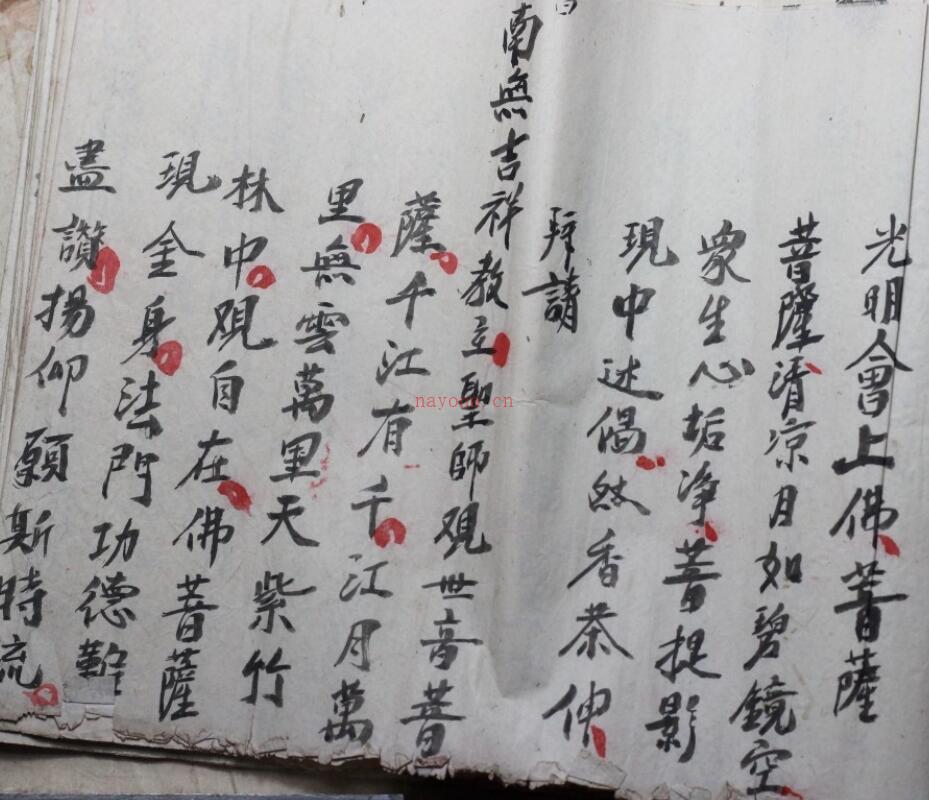 光明會上佛菩薩
菩薩清凉月如碧鏡空
衆生心垢净菩提影
現中述偈然香恭伸
拜請
南無吉祥教立聖師观世音菩
薩千江有千江月萬
里無雲萬里天紫竹
林中观自在佛菩薩
現金身法門功德難
盡讚揚仰願斯時流
nayouc.cn